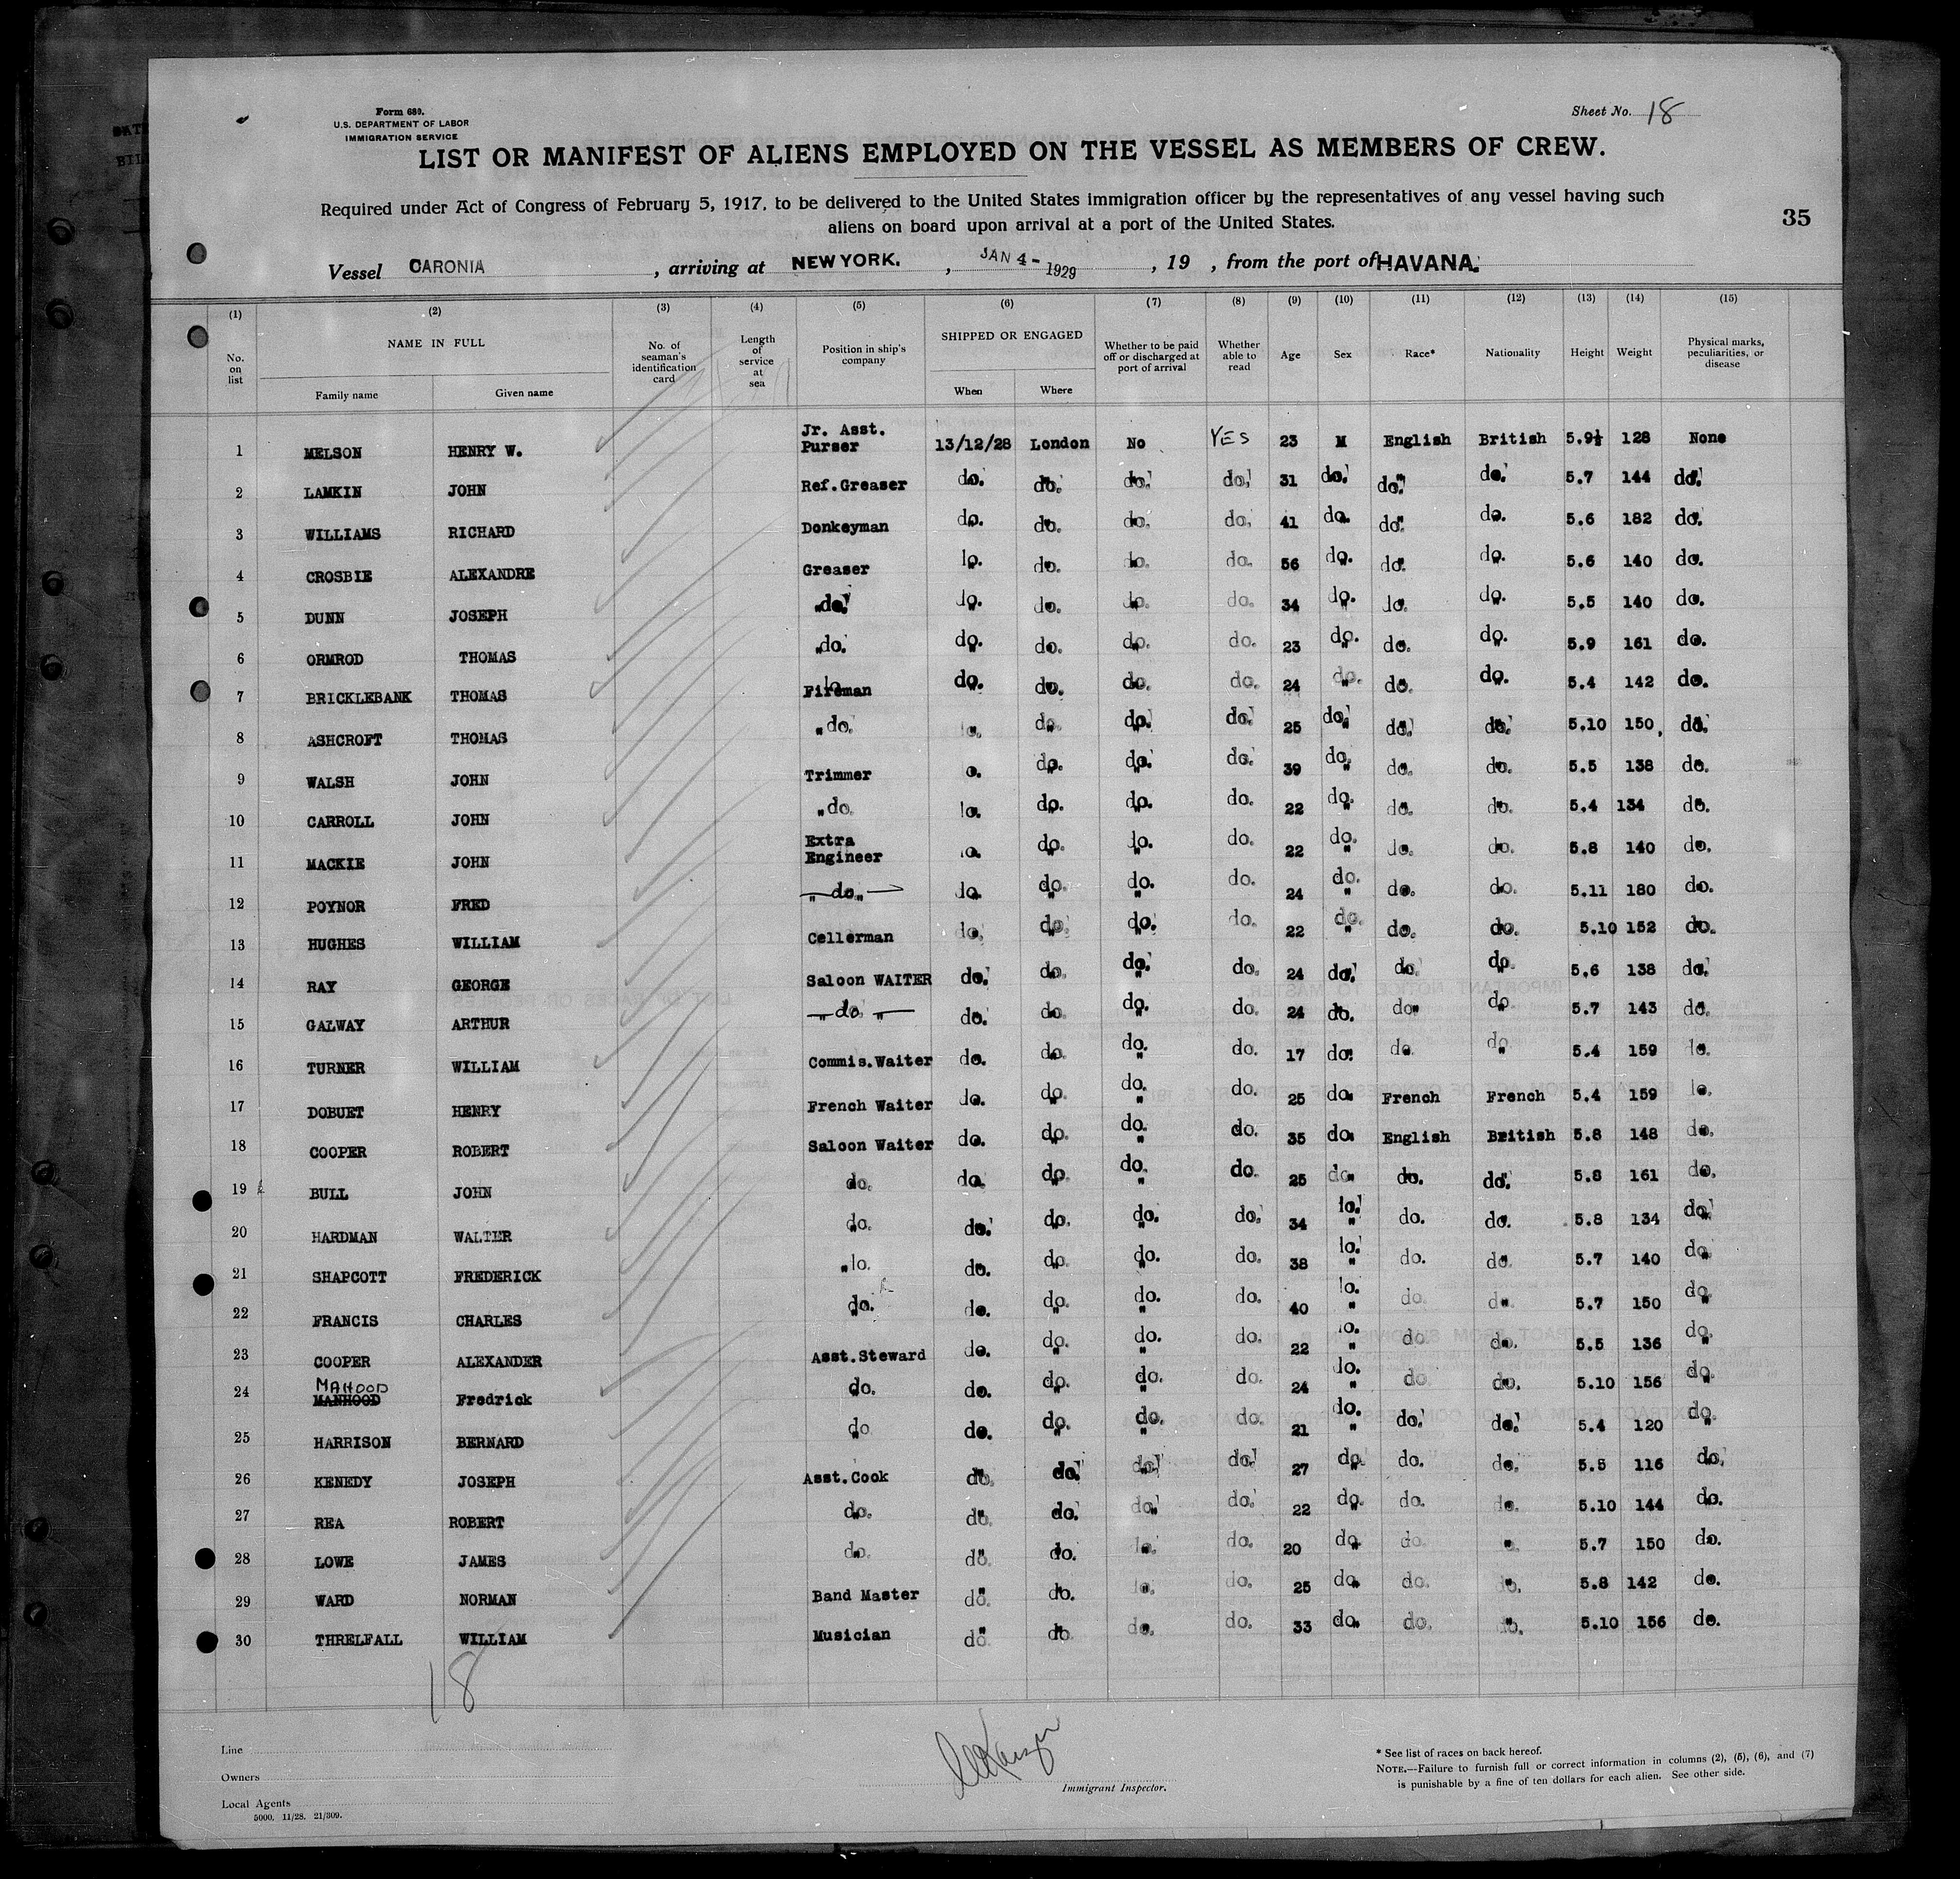 Form 680.
U.S. DEPARTMENT OF LABOR
IMMIGRATION SERVICE
Sheet No. 18
LIST OR MANIFEST OF ALIENS EMPLOYED ON THE VESSEL AS MEMBERS OF CREW.
Required under Act of Congress of February 5, 1917, to be delivered to the United States immigration officer by the representatives of any vessel having such
aliens on board upon arrival at a port of the United States.
35
Vessel CARONIA, arriving at NEW YORK., JAN 4- 1929, 19 , from the port of HAVANA.
(1) (2) (3) (4) (5) (6) (7) (8) (9) (10) (11) (12) (13) (14) (15)
No. on list NAME IN FULL Family name Given name No. of seaman's identification card Length of service at sea Position in ship's company SHIPPED OR ENGAGED When Where Whether to be paid off or discharged at port of arrival Whether able to read Age Sex Race* Nationality Height Weight Physical marks, peculiarities, or disease
1 MELSON HENRY W. Jr. Asst. Purser 13/12/28 London No YES 23 M English British 5.9½ 128 None
2 LAMKIN JOHN Ref.Greaser do. do. do. do. 31 do. do. do. 5.7 144 do.
3 WILLIAMS RICHARD Donkeyman do. do. do. do. 41 do. do. do. 5.6 182 do.
4 CROSBIE ALEXANDRE Greaser do. do. do. do. 56 do. do. do. 5.6 140 do.
5 DUNN JOSEPH do. do. do. do. do. 34 do. do. do. 5.5 140 do.
6 ORMROD THOMAS do. do. do. do. do. 23 do. do. do. 5.9 161 do.
7 BRICKLEBANK THOMAS Fireman do. do. do. do. 24 do. do. do. 5.4 142 do.
8 ASHCROFT THOMAS do. do. do. do. do. 25 do. do. do. 5.10 150 do.
9 WALSH JOHN Trimmer do. do. do. do. 39 do. do. do. 5.5 138 do.
10 CARROLL JOHN do. do. do. do. do. 22 do. do. do. 5.4 134 do.
11 MACKIE JOHN Extra Engineer do. do. do. do. 22 do. do. do. 5.8 140 do.
12 POYNOR FRED do. do. do. do. do. 24 do. do. do. 5.11 180 do.
13 HUGHES WILLIAM Cellerman do. do. do. do. 22 do. do. do. 5.10 152 do.
14 RAY GEORGE Saloon WAITER do. do. do. do. 24 do. do. do. 5.6 138 do.
15 GALWAY ARTHUR do. do. do. do. do. 24 do. do. do. 5.7 143 do.
16 TURNER WILLIAM Commis.Waiter do. do. do. do. 17 do. do. do. 5.4 159 do.
17 DOBUET HENRY French Waiter do. do. do. do. 25 do. French French 5.4 159 do.
18 COOPER ROBERT Saloon Waiter do. do. do. do. 35 do. English British 5.8 148 do.
19 BULL JOHN do. do. do. do. do. 25 do. do. do. 5.8 161 do.
20 HARDMAN WALTER do. do. do. do. do. 34 do. do. do. 5.8 134 do.
21 SHAPCOTT FREDERICK do. do. do. do. do. 38 do. do. do. 5.7 140 do.
22 FRANCIS CHARLES do. do. do. do. do. 40 do. do. do. 5.7 150 do.
23 COOPER ALEXANDER Asst.Steward do. do. do. do. 22 do. do. do. 5.5 136 do.
24 MAHOOD MANHOOD Fredrick do. do. do. do. do. 24 do. do. do. 5.10 156 do.
25 HARRISON BERNARD do do. do. do. do. 21 do. do. do. 5.4 120 do.
26 KENEDY JOSEPH Asst.Cook do. do. do. do. 27 do. do. do. 5.5 116 do.
27 REA ROBERT do. do. do. do. do. 22 do. do. do. 5.10 144 do.
28 LOWE JAMES do. do. do. do. do. 20 do. do. do. 5.7 150 do.
29 WARD NORMAN Band Master do. do. do. do. 25 do. do. do. 5.8 142 do.
30 THRELFALL WILLIAM Musician do. do. do. do. 33 do. do. do. 5.10 156 do.
18
Line
Owners
Local Agents
5000. 11/28. 21/309.
Immigrant Inspector.
* See list of races on back hereof.
NOTE.—Failure to furnish full or correct information in columns (2), (5), (6), and (7)
is punishable by a fine of ten dollars for each alien. See other side.